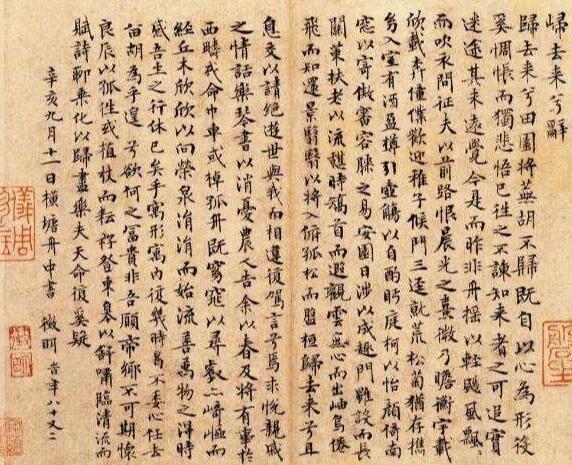 歸去来兮辭
歸去来兮田園將蕪胡不歸既自以心為形役
奚惆悵而獨悲悟已往之不諫知来者之可追實
迷途其未遠覺今是而昨非舟摇以輕颺風飄飄
而吹衣問征夫以前路恨晨光之熹微乃瞻衡宇載
欣載奔僮僕歡迎稚子候門三逕就荒松菊猶存携
幼入室有酒盈樽引壺觴以自酌眄庭柯以怡顔倚南
窓以寄傲審容膝之易安園日涉以成趣門雖設而長
關策扶老以流憩時矯首而遐觀雲無心而出岫鳥倦
飛而知還景翳翳以將入撫孤松而盤桓歸去来兮且
息交以請絶遊世與我而相違復駕言兮焉求悦親戚
之情話樂琴書以消憂農人告余以春及將有事於
西疇或命巾車或棹孤舟既窈窕以尋壑亦崎嶇而
經丘木欣欣以向榮泉涓涓而始流善萬物之得時
感吾生之行休已矣乎寓形寓内復幾時曷不委心任去
留胡為乎遑兮欲何之富貴非吾願帝鄉不可期懷
良辰以孤往或植杖而耘籽登東皋以舒嘯臨清流而
賦詩聊乘化以歸盡樂夫天命復奚疑
辛亥九月十一日横塘舟中書 徵明 時年八十又二